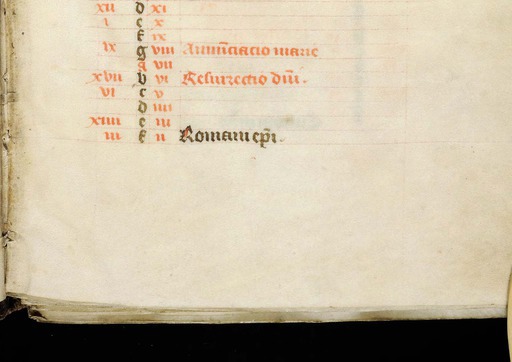 xii d xi
i e x
f ix
ix g viii Annūciacio marie
a vii
xvii b vi Resurrectio dn̄i.
vi c v
d iiii
xiiii e iii
iii f ii Romani ep̄i.